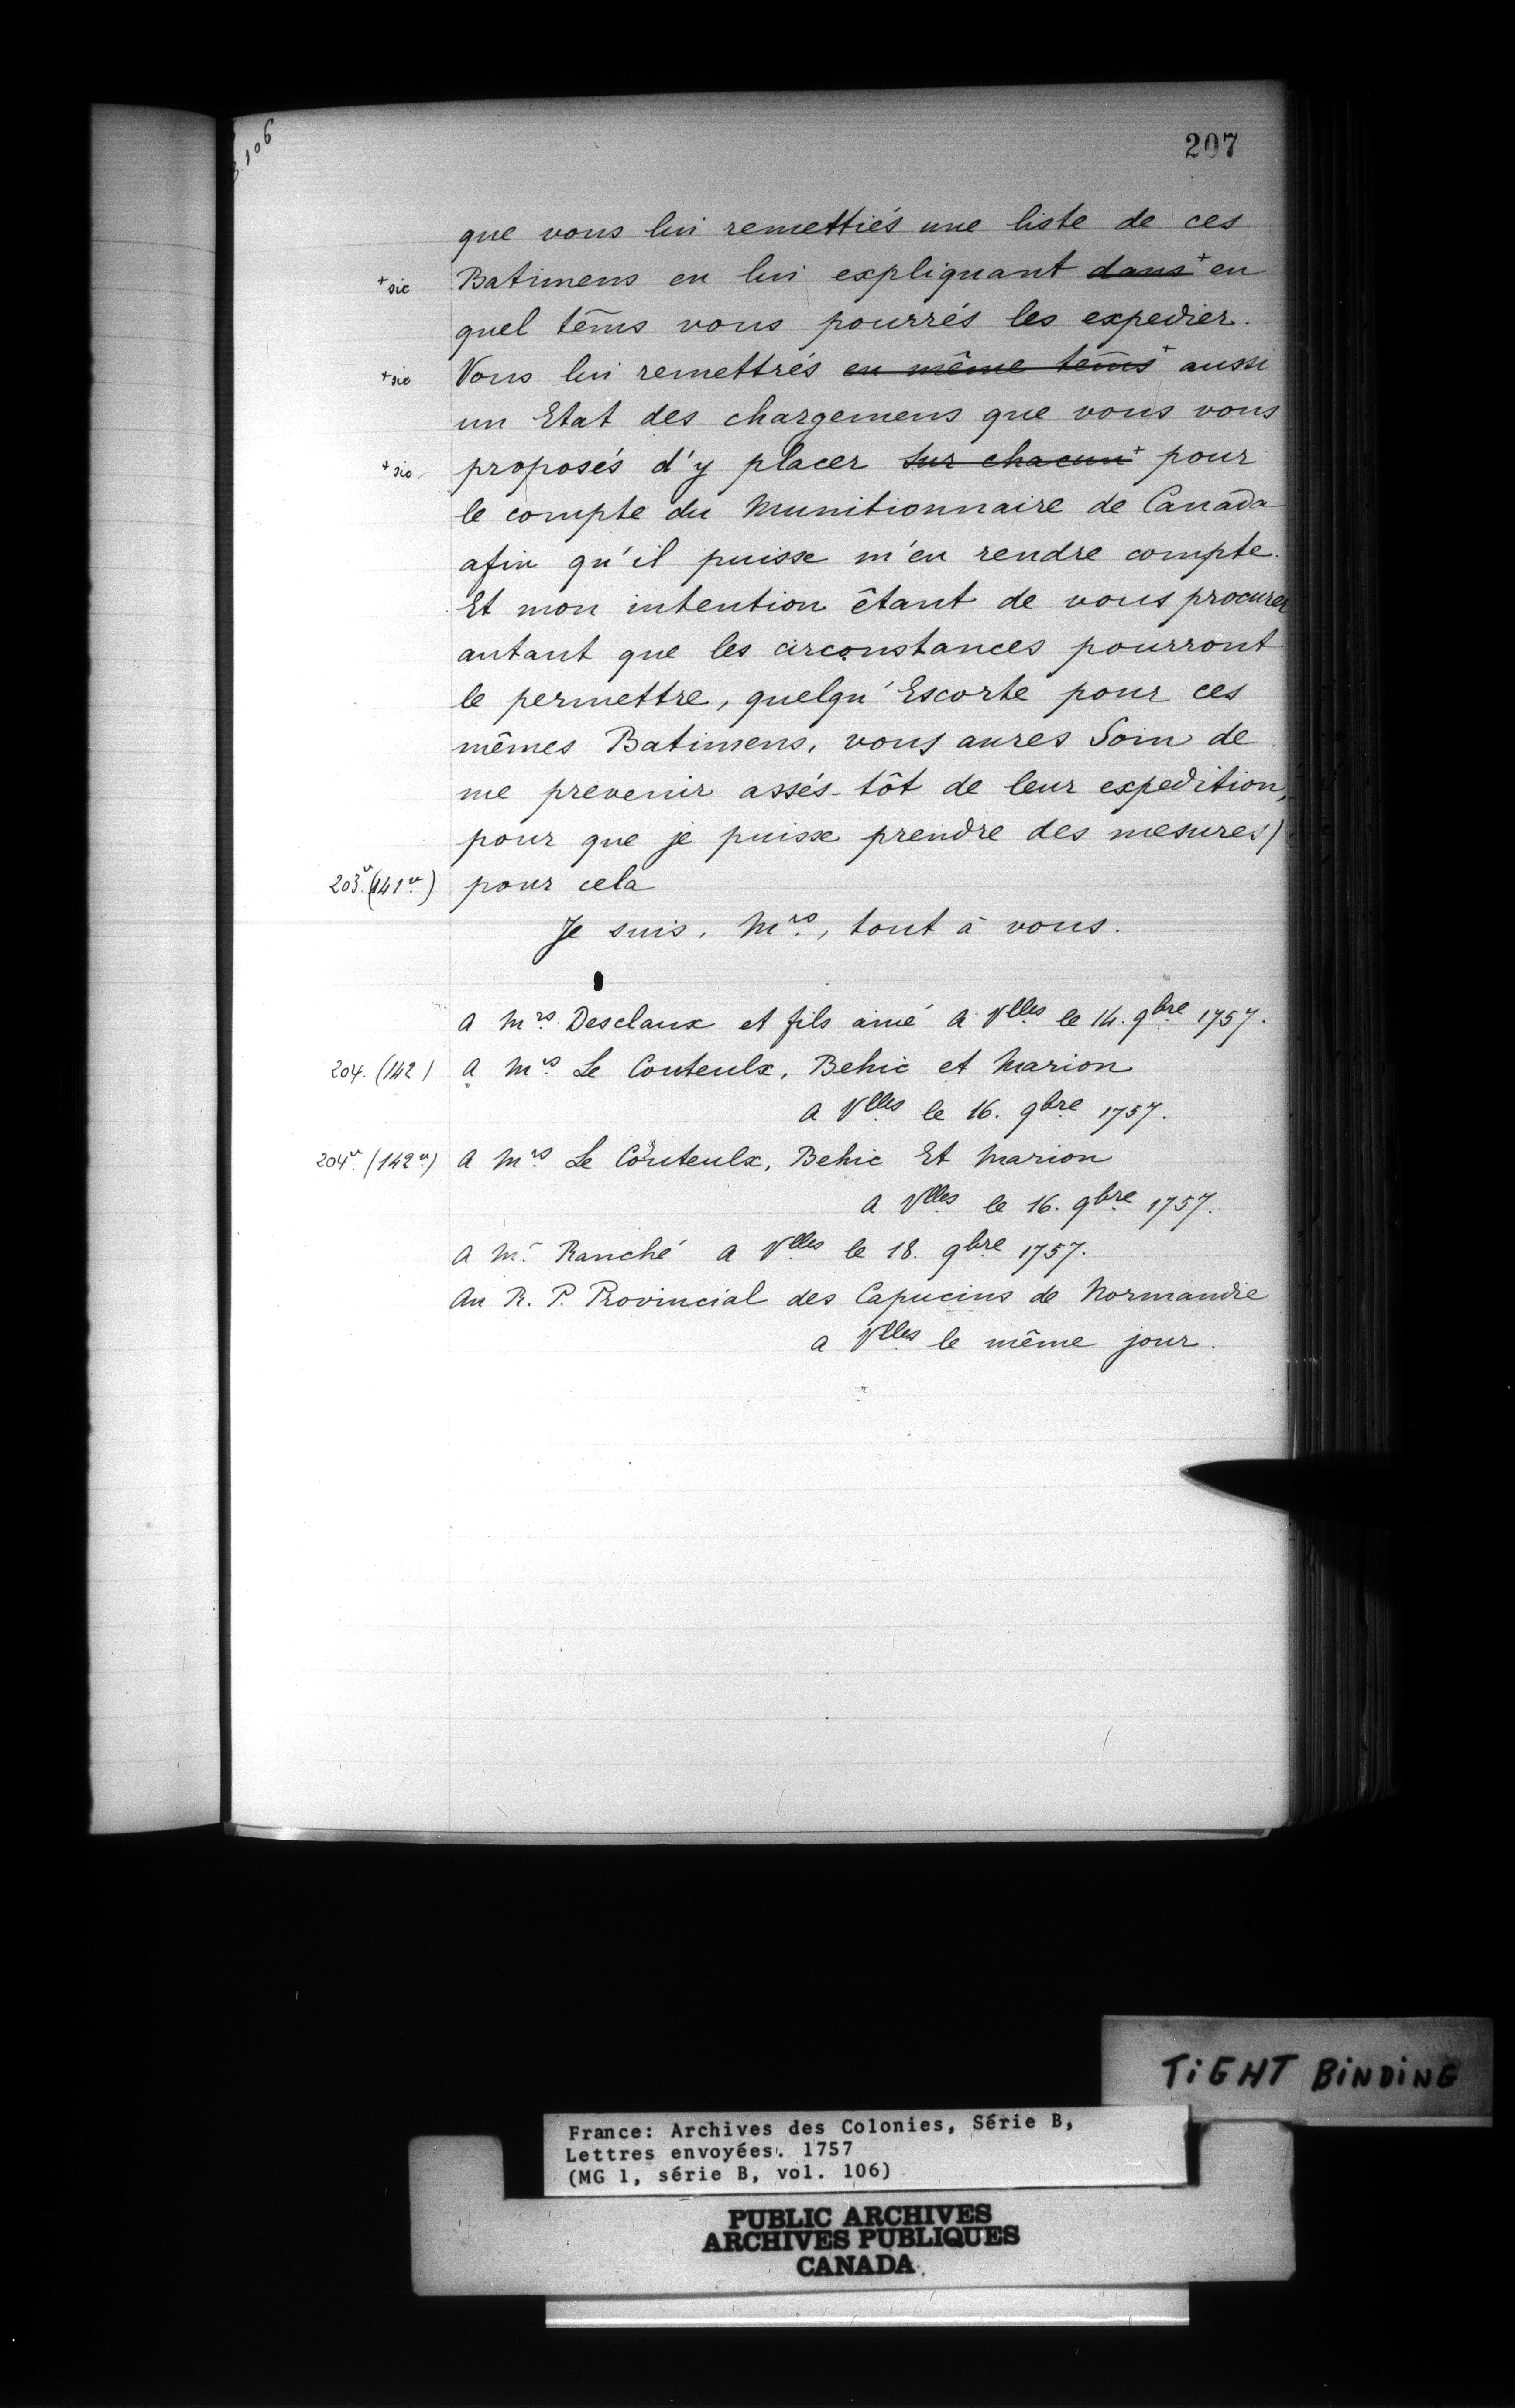 B. 106
207
que vous lui remettiés une liste de ces
+ sic Batimens en lui expliquant dans + en
quel tēms vous pourrés les expedier.
+ sic Vous lui remettrés en même tēms + aussi
un Etat des chargemens que vous vous
+ sic proposés d'y placer sur chacun + pour
le compte du Munitionnaire de Canada
afin qu'il puisse m'en rendre compte.
Et mon intention êtant de vous procurer
autant que les circonstances pourront
le permettre, quelqu'Escorte pour ces
mêmes Batimens, vous aures Soin de
me prevenir assés-tôt de leur expedition,
pour que je puisse prendre des mesures)
203.v (141 v.) pour cela
Je suis, Mrs., tout à vous.
a Mrs. Desclaux et fils ainé a Vlles le 14. 9bre 1757.
204. (142) a Mrs. Le Couteulx, Behic et Marion
a Vlles le 16. 9bre 1757.
204 v. (142 v.) a Mrs. Le Couteulx, Behic Et Marion
a Vlles le 16. 9bre 1757.
a Mr. Ranché a Vlles le 18. 9bre 1757.
Au R. P. Provincial des Capucins de Normandie
a Vlles le même jour.
TiGHT BiNDiNG
France: Archives des Colonies, Série B,
Lettres envoyées. 1757
(MG 1, série B, vol. 106)
PUBLIC ARCHIVES
ARCHIVES PUBLIQUES
CANADA